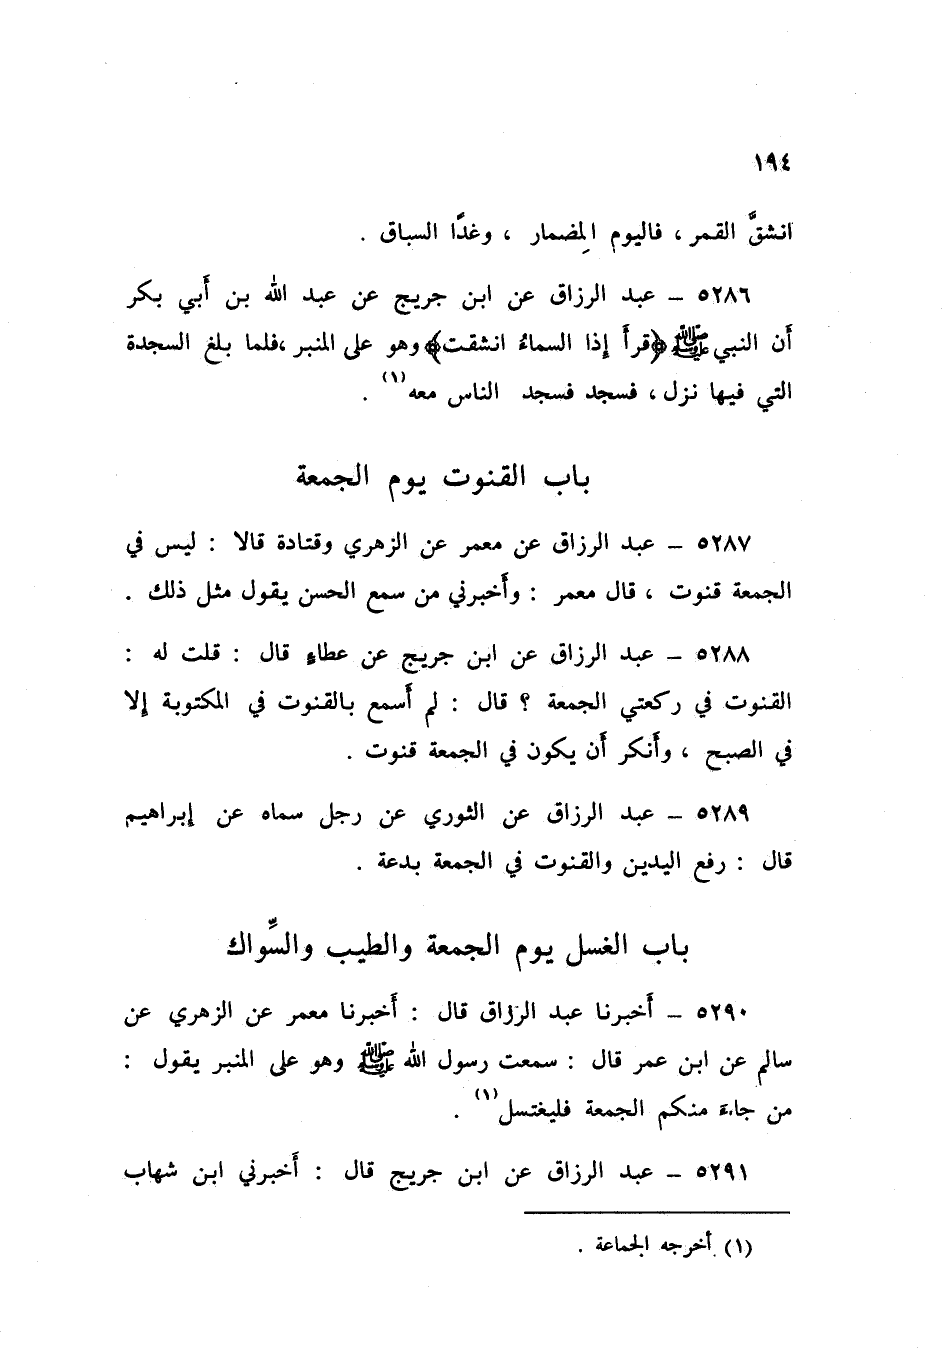 ١٩٤
انشقَّ القمر ، فاليوم المِضمار ، وغدًا السباق .
٥٢٨٦ – عبد الرزاق عن ابن جريج عن عبد الله بن أَبي بكر
أَن النبي ﷺ ﴿قرأَ إذا السماءُ انشقت﴾ وهو على المنبر ،فلما بلغ السجدة
التي فيها نزل ، فسجد فسجد الناس معه (١) .
باب القنوت يوم الجمعة
٥٢٨٧ – عبد الرزاق عن معمر عن الزهري وقتادة قالا : ليس في
الجمعة قنوت ، قال معمر : وأَخبرني من سمع الحسن يقول مثل ذلك .
٥٢٨٨ – عبد الرزاق عن ابن جريج عن عطاءٍ قال : قلت له :
القنوت في ركعتي الجمعة ؟ قال : لم أَسمع بالقنوت في المكتوبة إلا
في الصبح ، وأَنكر أَن يكون في الجمعة قنوت .
٥٢٨٩ – عبد الرزاق عن الثوري عن رجل سماه عن إبراهيم
قال : رفع اليدين والقنوت في الجمعة بدعة .
باب الغسل يوم الجمعة والطيب والسِّواك
٥٢٩٠ – أَخبرنا عبد الرزاق قال : أَخبرنا معمر عن الزهري عن
سالم عن ابن عمر قال : سمعت رسول الله ﷺ وهو على المنبر يقول :
من جاءَ منكم الجمعة فليغتسل (١) .
٥٢٩١ – عبد الرزاق عن ابن جريج قال : أَخبرني ابن شهاب
(١) أخرجه الجماعة .